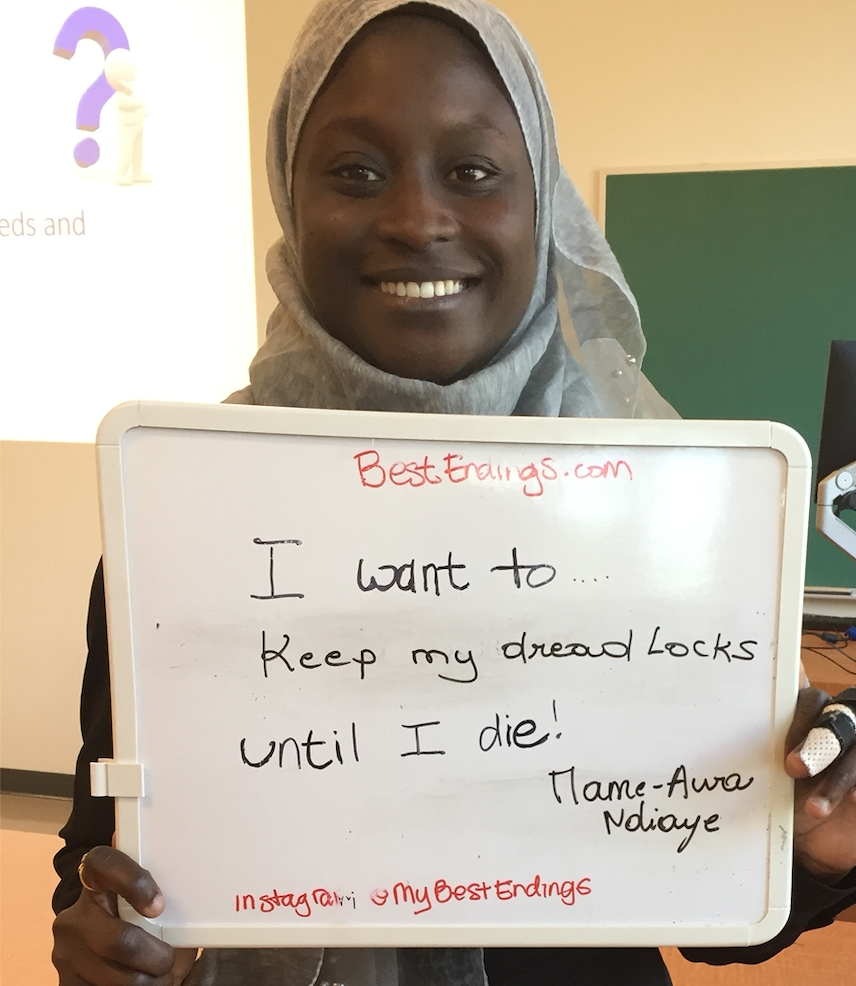 ?
eds and
BestEndings.com
I want to....
Keep my dread Locks
until I die!
Mame-Awa
Ndiaye
instagram @MyBestEndings